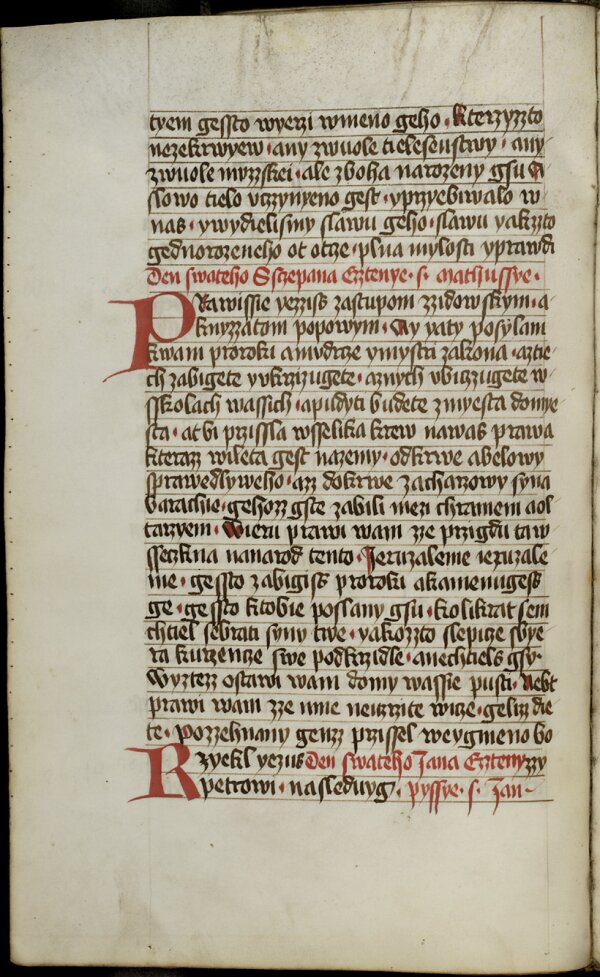 tyem gessto wyerzi wmeno geho · kterzyzzto
nezekrwyew · any zwuole tielesenstwy · any
zwuole muzzskei · ale zboha narozeny gsu A
slowo tielo vczynyeno gest · yprzyebiwalo w
nas · ywydielismy slawu geho · slawu yakzto
gednorozeneho ot otcze · plna mylosti yprawdi
Den swateho Sstepana Cztenye · s · mathussye ·
PRawissie yezzis zastupom zzidowskym · a
knyzzatom popowym · Ay yaty posylam
kwam proroki amudrze ymystri zakona · aztie
ch zabigete yvkrzizugete · aznych vbiczugete w
sskolach wassich · apildyti budete zmyesta domye
sta · at bi przissla wsselika krew nawas prawa
kteraz wileta gest nazemy · odkrwe abelowy
sprawedlyweho · azz dokrwe zacharzowy syna
barachie · gehozz gste zabili mezi chramem aol
tarzyem · Wieru prawi wam zze przigdu taw
sseczkna nanarod tento · Jeruzaleme ieruzale
me · gessto zabigiss proroki akamenugess
ge · gessto ktobie poslany gsu · kolikrat sem
chtiel sebrati syny twe · yakozzto slepicze sbye
ra kurzencze swe podkrzidle · anechtiels gsy ·
Wyztezz ostawi wam domy wassie pusti · Nebt
prawi wam zze mne neuzrzite wicze · gelizz die
te · pozzehnany genzz przissel weygmeno bo
Rzyekl yezus Den swateho Jana Cztenyzzy
petrowi · nasleduyg · pyssye · s · Jan ·